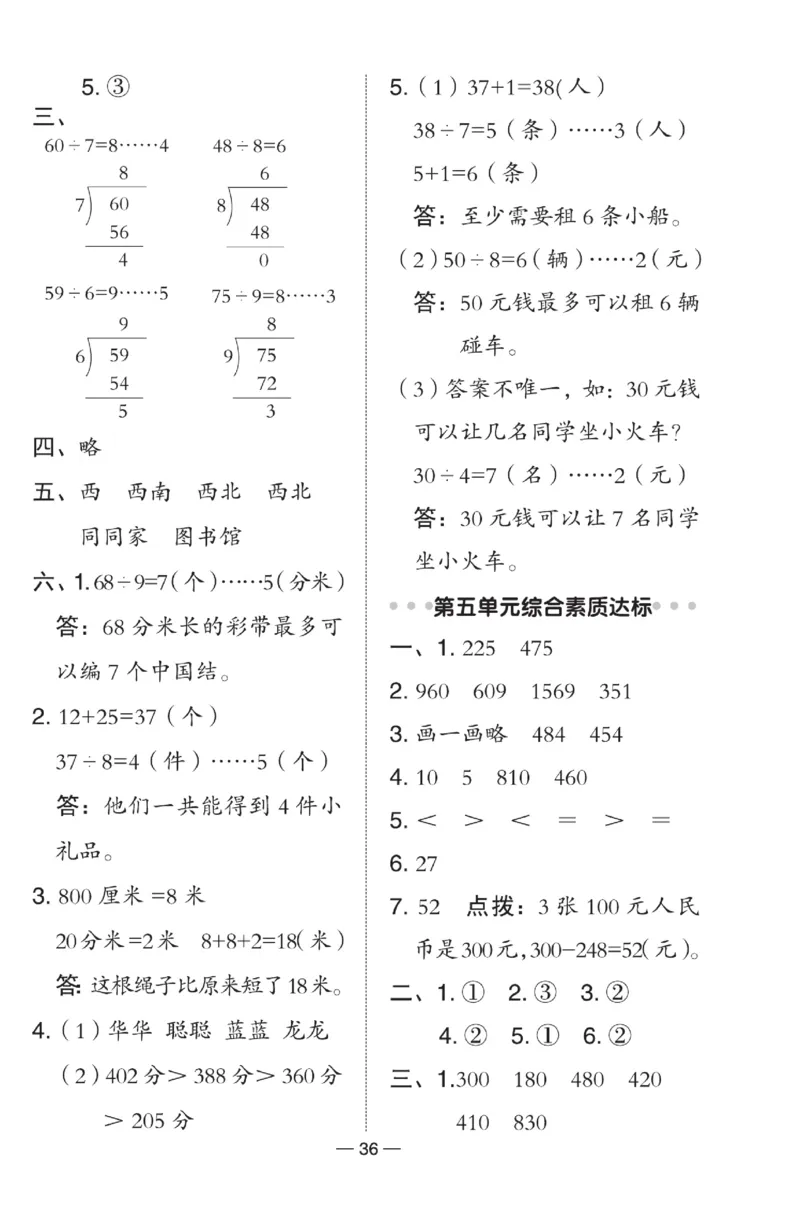 5. ③
三、
60÷7=8……4 48÷8=6
8 6
7 60 8 48
56 48
4 0
59÷6=9……5 75÷9=8……3
9 8
6 59 9 75
54 72
5 3
四、略
五、西 西南 西北 西北
同同家 图书馆
六、1.68÷9=7(个)……5(分米)
答：68 分米长的彩带最多可
以编 7 个中国结。
2. 12+25=37（个）
37÷8=4（件）……5（个）
答：他们一共能得到 4 件小
礼品。
3. 800 厘米 =8 米
20分米=2米 8+8+2=18(米)
答:这根绳子比原来短了18米。
4.（1）华华 聪聪 蓝蓝 龙龙
（2）402 分＞ 388 分＞ 360 分
＞ 205 分
5.（1）37+1=38(人)
38÷7=5（条）……3（人）
5+1=6（条）
答：至少需要租 6 条小船。
（2）50÷8=6（辆）……2（元）
答：50 元钱最多可以租 6 辆
碰车。
（3）答案不唯一，如：30 元钱
可以让几名同学坐小火车？
30÷4=7（名）……2（元）
答：30 元钱可以让 7 名同学
坐小火车。
第五单元综合素质达标
一、1. 225 475
2. 960 609 1569 351
3. 画一画略 484 454
4. 10 5 810 460
5. ＜ ＞ ＜ ＝ ＞ ＝
6. 27
7. 52 点拨：3 张 100 元人民
币是300元,300-248=52(元)。
二、1. ① 2. ③ 3. ②
4. ② 5. ① 6. ②
三、1.300 180 480 420
410 830
— 36 —